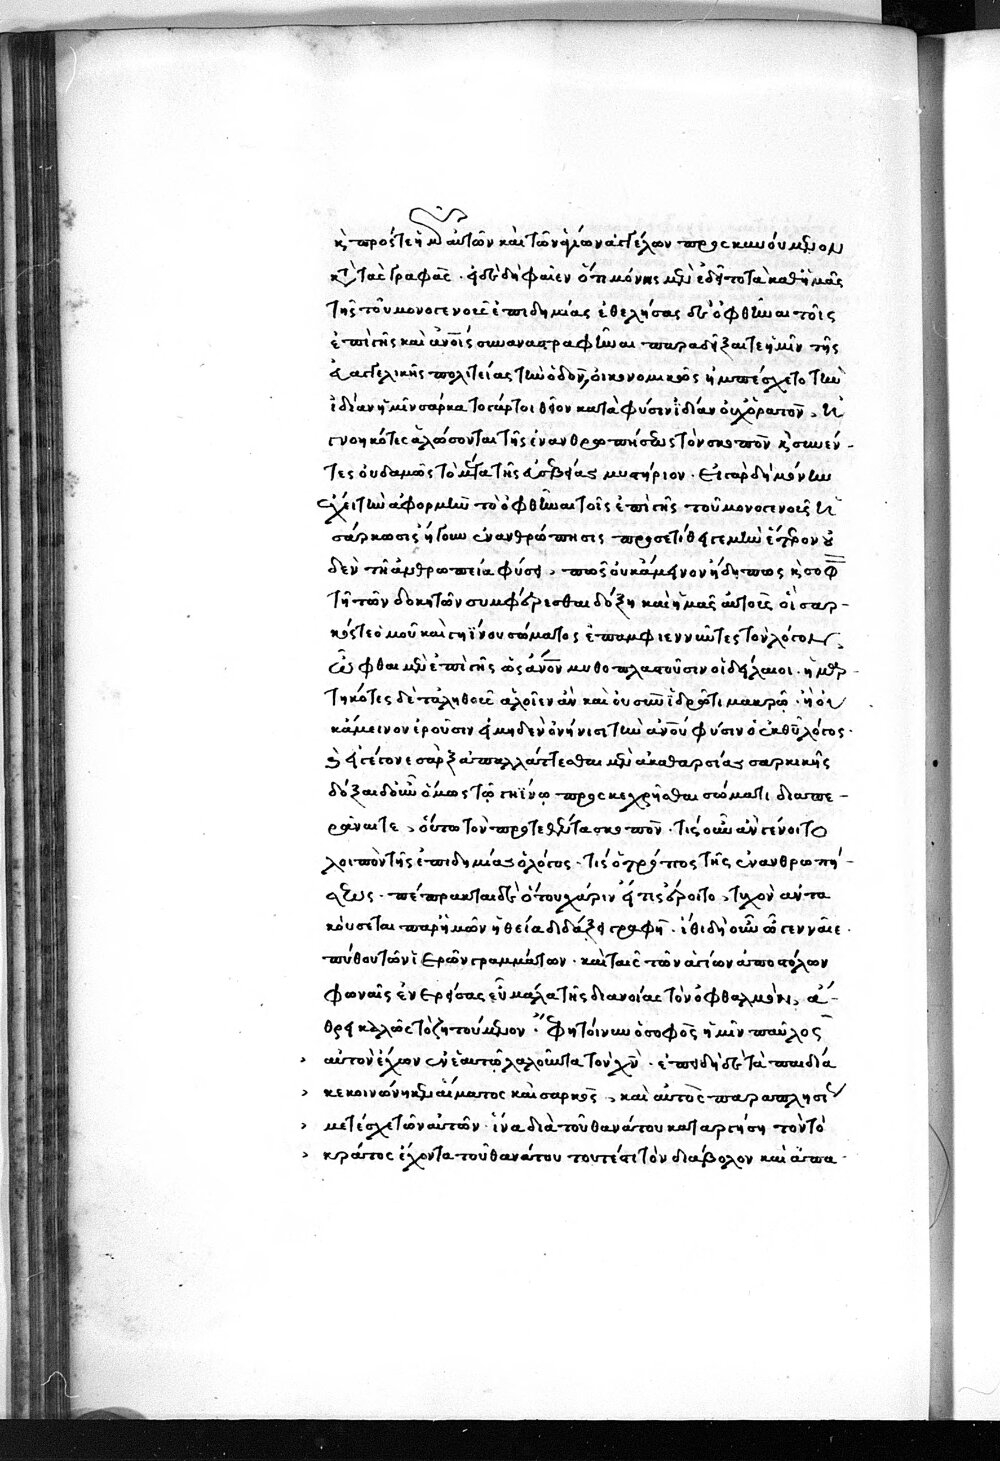 κ πρός τε ἡμῶν αὐτῶν καὶ τῶν ἁγίων ἀγγέλων προσκυνούμενον
κατὰ τὰς γραφάς· εἰ δὲ δὴ φαῖεν ὅτι μόνης μὲν ἐδεῖτο τὰ καθ' ἡμᾶς
τῆς τοῦ μονογενοῦς ἐπιδημίας ἐθελήσας δὲ ὀφθῆναι τοῖς
ἐπὶ γῆς καὶ ἀνοις συναναστραφῆναι παραδεῖξαί τε ἡμῖν τῆς
εὐαγγελικῆς πολιτείας τὴν ὁδόν, οἰκονομικῶς ἠμπέσχετο τὴν
ἰδίαν ἡμῖν σάρκα τὸ γάρ τοι θεῖον κατὰ φύσιν ἰδίαν οὐχ ὁρατόν,
ἠγνοηκότες ἁλώσονται τῆς ἐνανθρωπήσεως τὸν σκοπὸν κ συνέν-
τες οὐδαμῶς τὸ μέγα τῆς εὐσεβείας μυστήριον· Εἰ γὰρ δὴ μόνην
ἔχει τὴν ἀφορμὴν τὸ ὀφθῆναι τοῖς ἐπὶ γῆς τοῦ μονογενοῦς ἡ
σάρκωσις ἤγουν ἐνανθρώπησις προσετίθει γε μὴν ἕτερον οὐ
δὲν τῇ ἀνθρωπεία φύσει, πῶς οὐκ ἄμεινον ἤδη πως κ σοφ
τῇ τῶν δοκητῶν συμφέρεσθαι δόξῃ καὶ ἡμᾶς αὐτοὺς οἳ σαρ-
κός τε ὁμοῦ καὶ γηΐνου σώματος ἐπαμφιεννύντες τὸν λόγον,
ὦφθαι μὲν ἐπὶ γῆς ὡς ἄνον μυθοπλαστοῦσιν οἱ δείλαιοι· ἡμαρ-
τηκότες δὲ τἀληθοῦς ἁλοῖεν ἂν καὶ οὐ σὺν ἱδρῶτι μακρῷ· ἢ οὐ
κ ἄμεινον ἐροῦσιν εἰ μηδὲν ὀνίνησι τὴν ἀνου φύσιν ὁ ἐκ θυ λόγος·
ὅτι γέγονε σὰρξ ἀπαλλάττεσθαι μὲν ἀκαθαρσίας σαρκικῆς
δόξαι δ' οὖν ὅμως τῷ γηΐνῳ προσκεχρῆσθαι σώματι διαπε-
ράναι τε, οὕτω τὸν προτεθέντα σκοπόν· τίς οὖν ἂν γένοιτο
λοιπὸν τῆς ἐπιδημίας ὁ λόγος· τίς ὁ τρόπος τῆς ἐνανθρωπή-
σεως· πέπρακται δὲ ὅτου χάριν εἴ τις ἔροιτο, τυχὸν ἀντα
κούσεται παρ' ἡμῶν ἡ θεία διδάξει γραφή· ἴθι δὴ οὖν ὦ γενναῖε·
πύθου τῶν ἱερῶν γραμμάτων· καὶ ταῖς τῶν ἁγίων ἀποστόλων
φωναῖς ἐνερείσας εὖ μάλα τῆς διανοίας τὸν ὀφθαλμόν, ἄ-
θρει καλῶς τὸ ζητούμενον· Ἔφη τοίνυν ὁ σοφὸς ἡμῖν παῦλος
› αὐτὸν ἔχων ἐν ἑαυτῷ λαλοῦντα τὸν χν· ἐπειδὴ δὲ τὰ παιδία
› κεκοινώνηκεν αἵματος καὶ σαρκός, καὶ αὐτὸς παραπλησί
› μετέσχε τῶν αὐτῶν· ἵνα διὰ τοῦ θανάτου καταργήσῃ τὸν τὸ
› κράτος ἔχοντα τοῦ θανάτου τουτέστι τὸν διάβολον καὶ ἀπα-